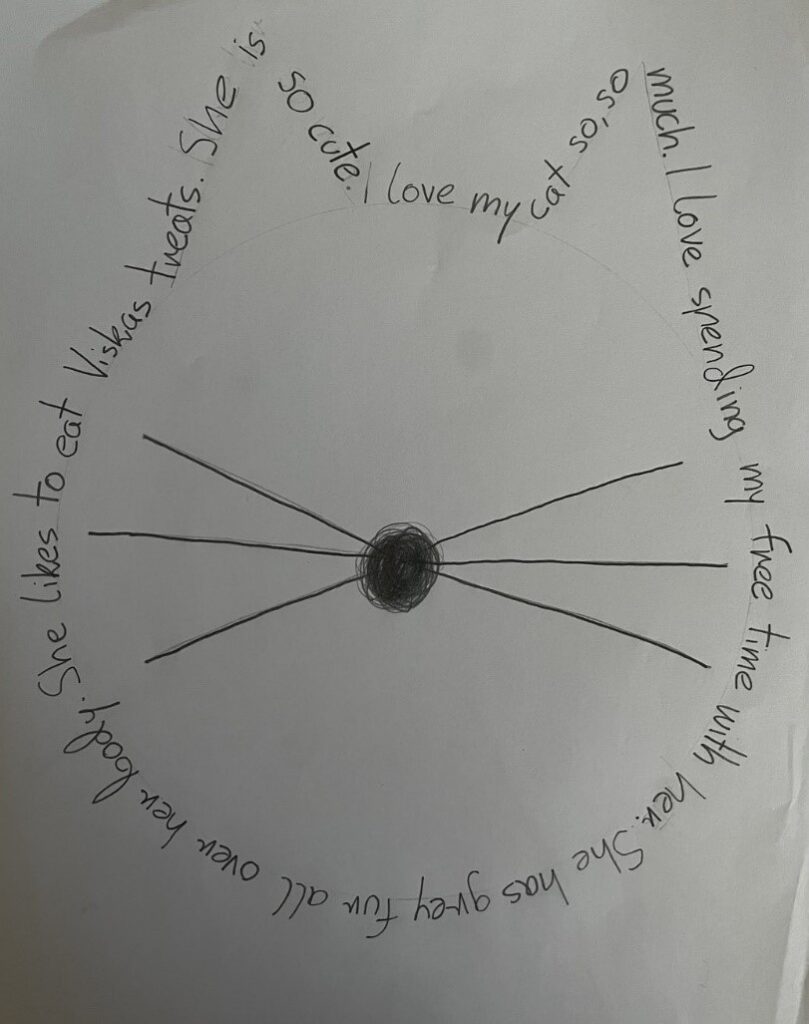 I love my cat so, so much. I love spending my free time with her. She has grey fur all over her body. She likes to eat Viskas treats. She is so cute.